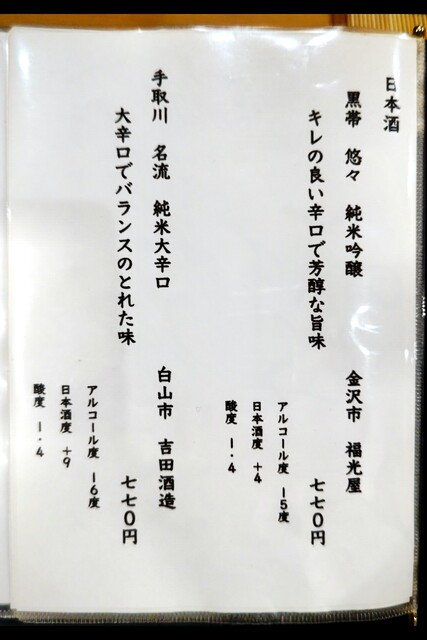 日本酒
黒帯 悠々 純米吟醸 金沢市 福光屋
キレの良い辛口で芳醇な旨味 七七〇円
アルコール度 一5度
日本酒度 +4
酸度 一.4
手取川 名流 純米大辛口 白山市 吉田酒造
大辛口でバランスのとれた味 七七〇円
アルコール度 一6度
日本酒度 +9
酸度 一.4